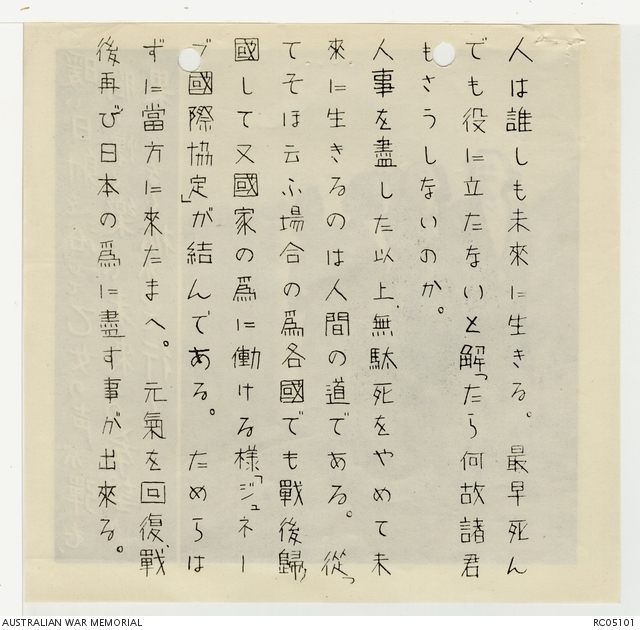 人は誰しも未來に生きる。　最早死ん
でも役に立たないと解つたら何故諸君
もさうしないのか。
人事を盡した以上、無駄死をやめて未
來に生きるのは人間の道である。　從つ
てそほ云ふ場合の爲各國でも戰後歸
國して又國家の爲に働ける様「ジュネー
ブ國際協定」が結んである。　ためらは
ずに當方に來たまへ。　元氣を回復、戰
後再び日本の爲に盡す事が出來る。
AUSTRALIAN WAR MEMORIAL
RC05101